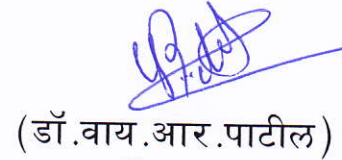 (डॉ.वाय.आर.पाटील)